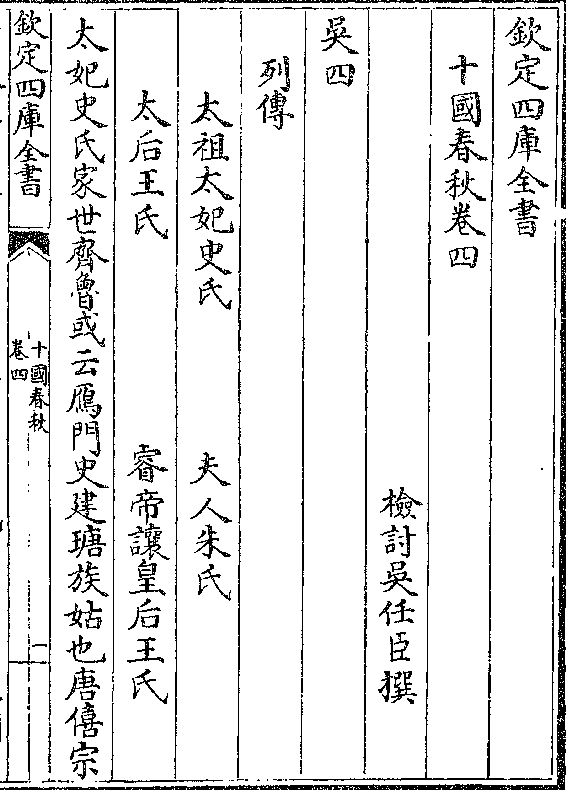 欽定四庫全書
十國春秋卷四
檢討吳任臣撰
吳四
列傳
太祖太妃史氏　夫人朱氏
太后王氏　睿帝讓皇后王氏
太妃史氏家世齊魯或云鴈門史建瑭族姑也唐僖宗
欽定四庫全書
十國春秋
卷四
一